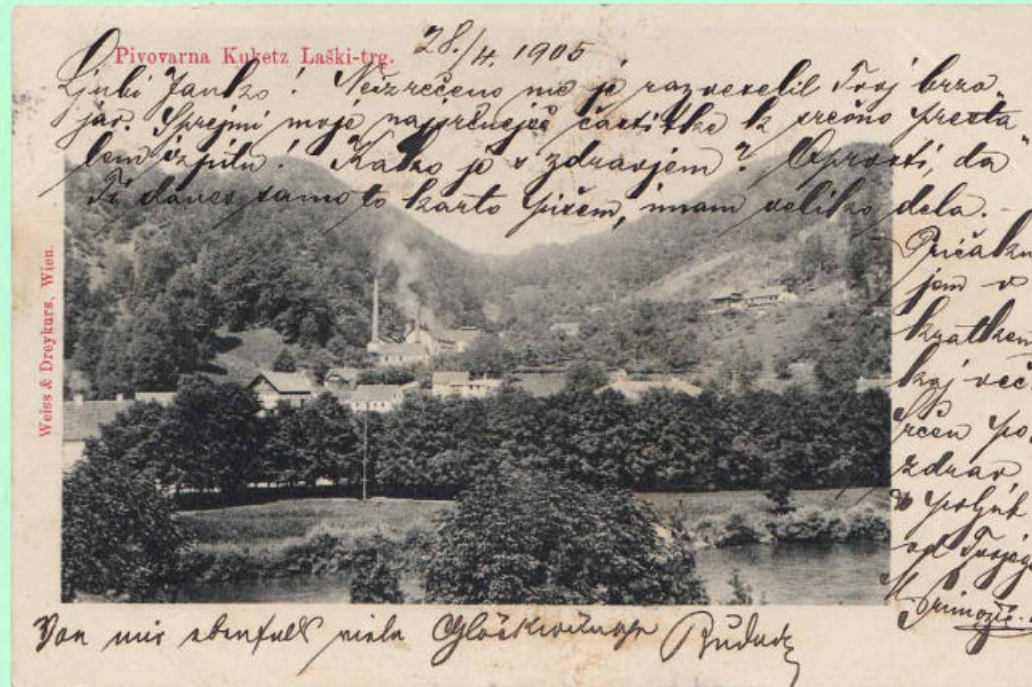 Pivovarna Kuketz Laški-trg.
28./4. 1905
Ljubi Janko! Neizrečeno me je razveselil Tvoj brzo-
jav. Sprejmi moje najsrčnejše častitke k srečno presta-
lem izpitu! Kako je z zdravjem? Oprosti, da
Ti danes samo to karto pišem, imam veliko dela.
Pričaku
jem v
kratkem
kaj več
srčen po-
zdrav
poljub
od Tvojega
Weiss & Dreykurs, Wien.
Von mir ebenfalls viele Glückwünsche